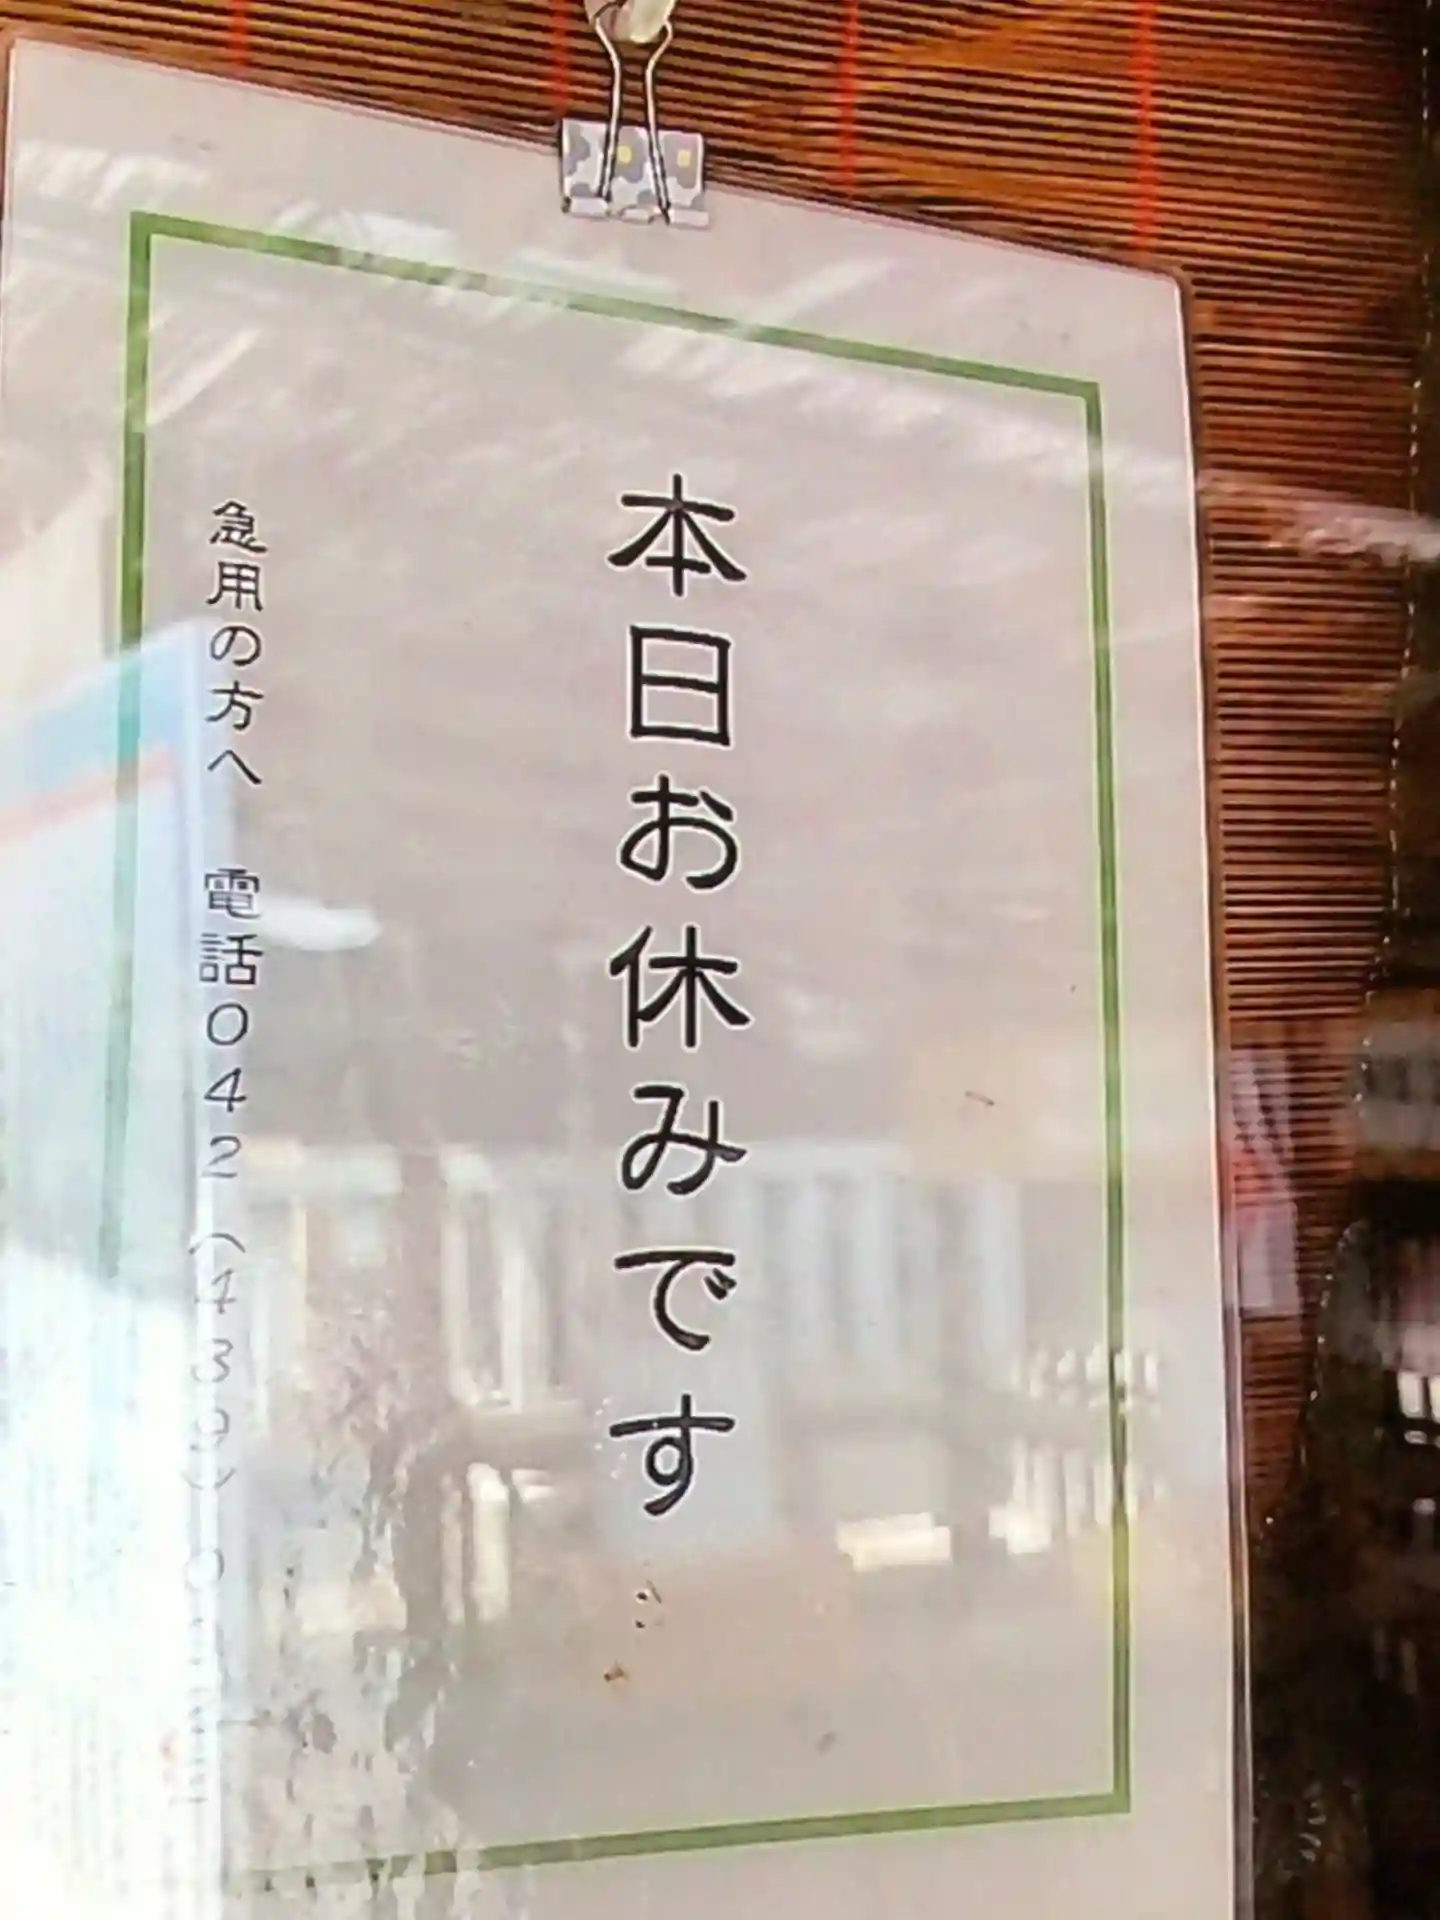 本日お休みです
急用の方へ　電話042(439)0